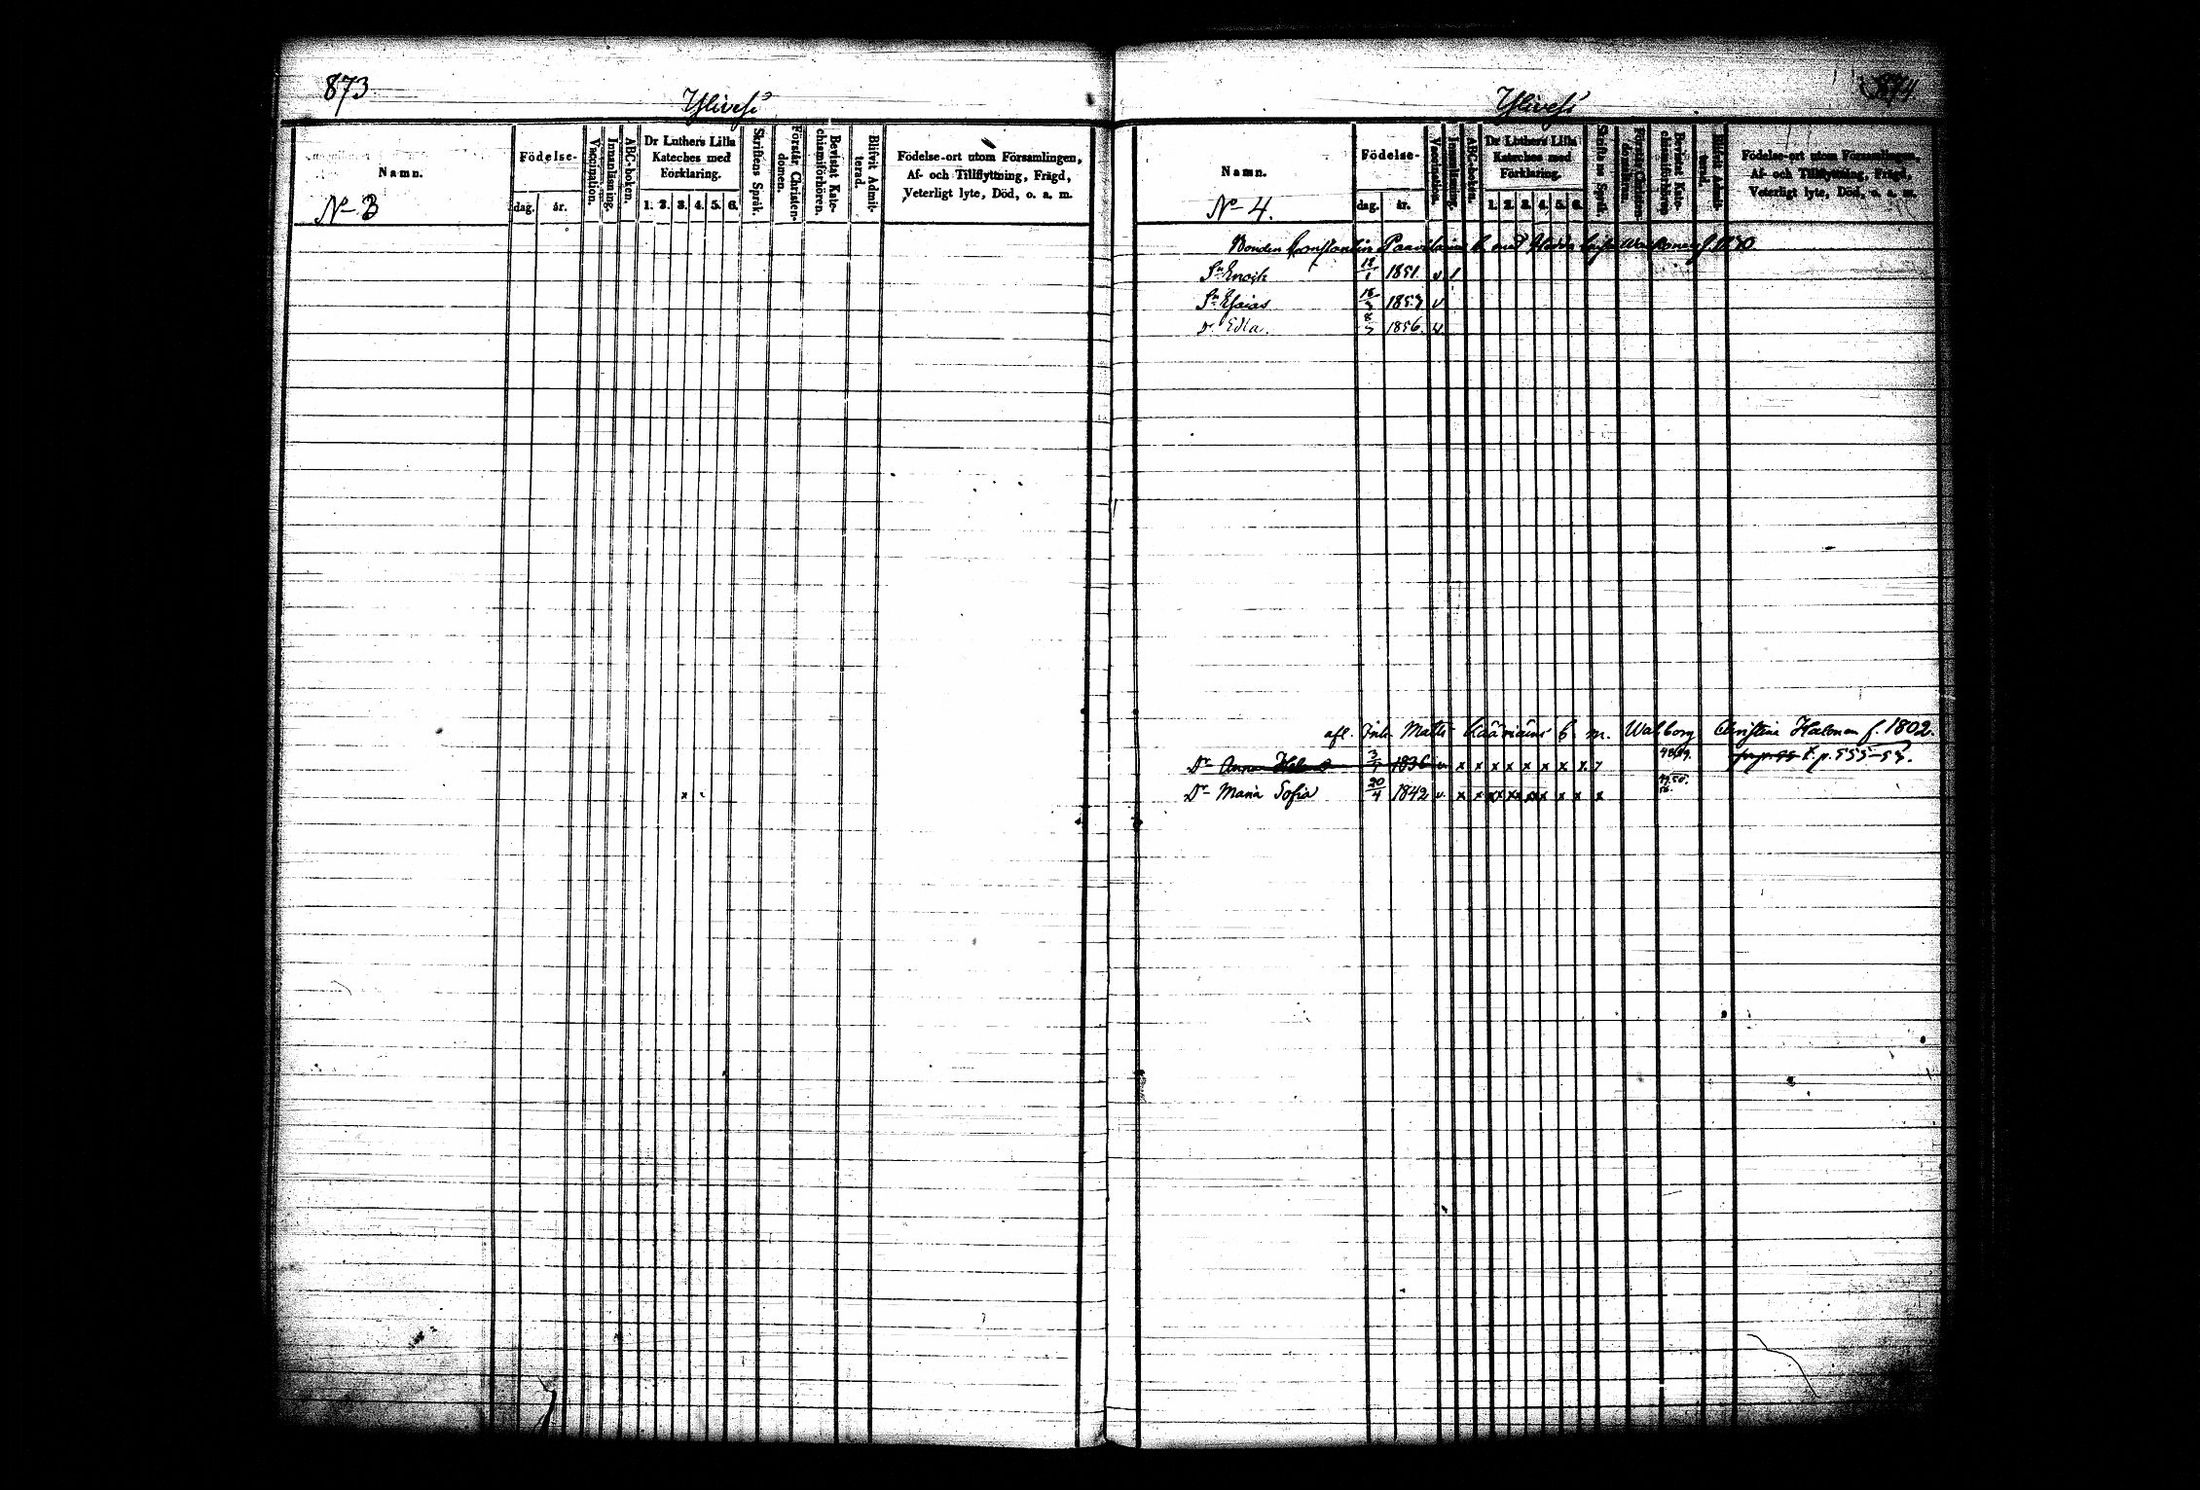 873
Ylivesi
Namn.
Födelse-
dag. år.
Vaccination.
Innanläsning.
ABC-boken.
Dr Luthers Lilla
Kateches med
Förklaring.
1. 2. 3. 4. 5. 6.
Skriftens Språk.
Förstår Christen-
domen.
Bevistat Kate-
chismiförhören.
Blifvit Admit-
terad.
Födelse-ort utom Församlingen,
Af- och Tillflyttning, Frägd,
Veterligt lyte, Död, o. a. m.
N- 3
x
874
Ylivesi
Namn.
Födelse-
dag. år.
Vaccination.
Innanläsning.
ABC-boken.
Dr Luthers Lilla
Kateches med
Förklaring.
1. 2. 3. 4. 5. 6.
Skriftens Språk.
Bevistat Kate-
Födelse-ort utom Församlingen,
Af- och Tillflyttning, Frägd,
Veterligt lyte, Död, o. a. m.
N- 4.
Bonden Konstantin Paavilainen
Sn Enok 18/1 1851. v 1
Sn Esaias 1853 v
Dr Edla. 1856. v
afl. Inh. Matts Kääriäins b. m. Walborg Christina Halonen f. 1802.
Dr Anna Helena 3/1 1836 v x x x x x x x x 48.49. p. 555-57.
Dr Maria Sofia 20/4 1842 v. x x xx xx xx x x x x